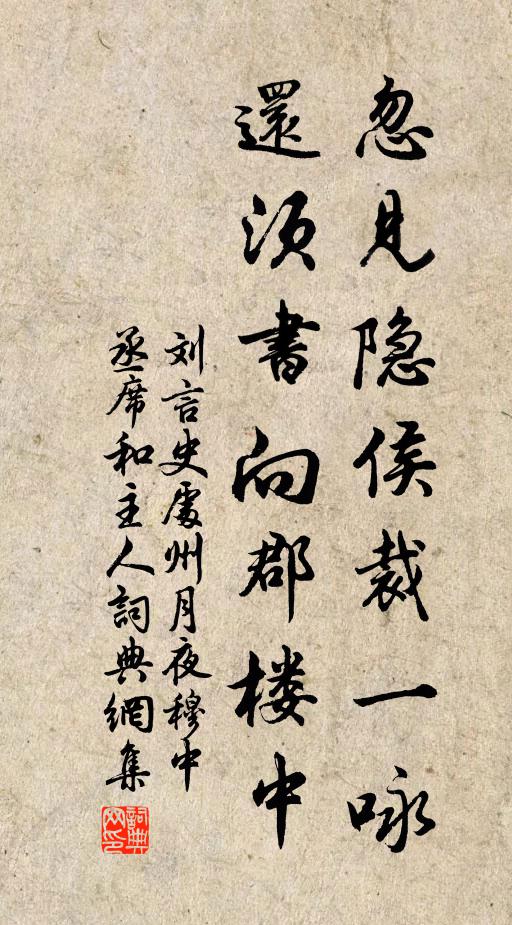 忽見隐侯裁一咏
還须書向郡楼中
刘言史處州月夜穆中
丞席和主人詞典網集
詞典网印